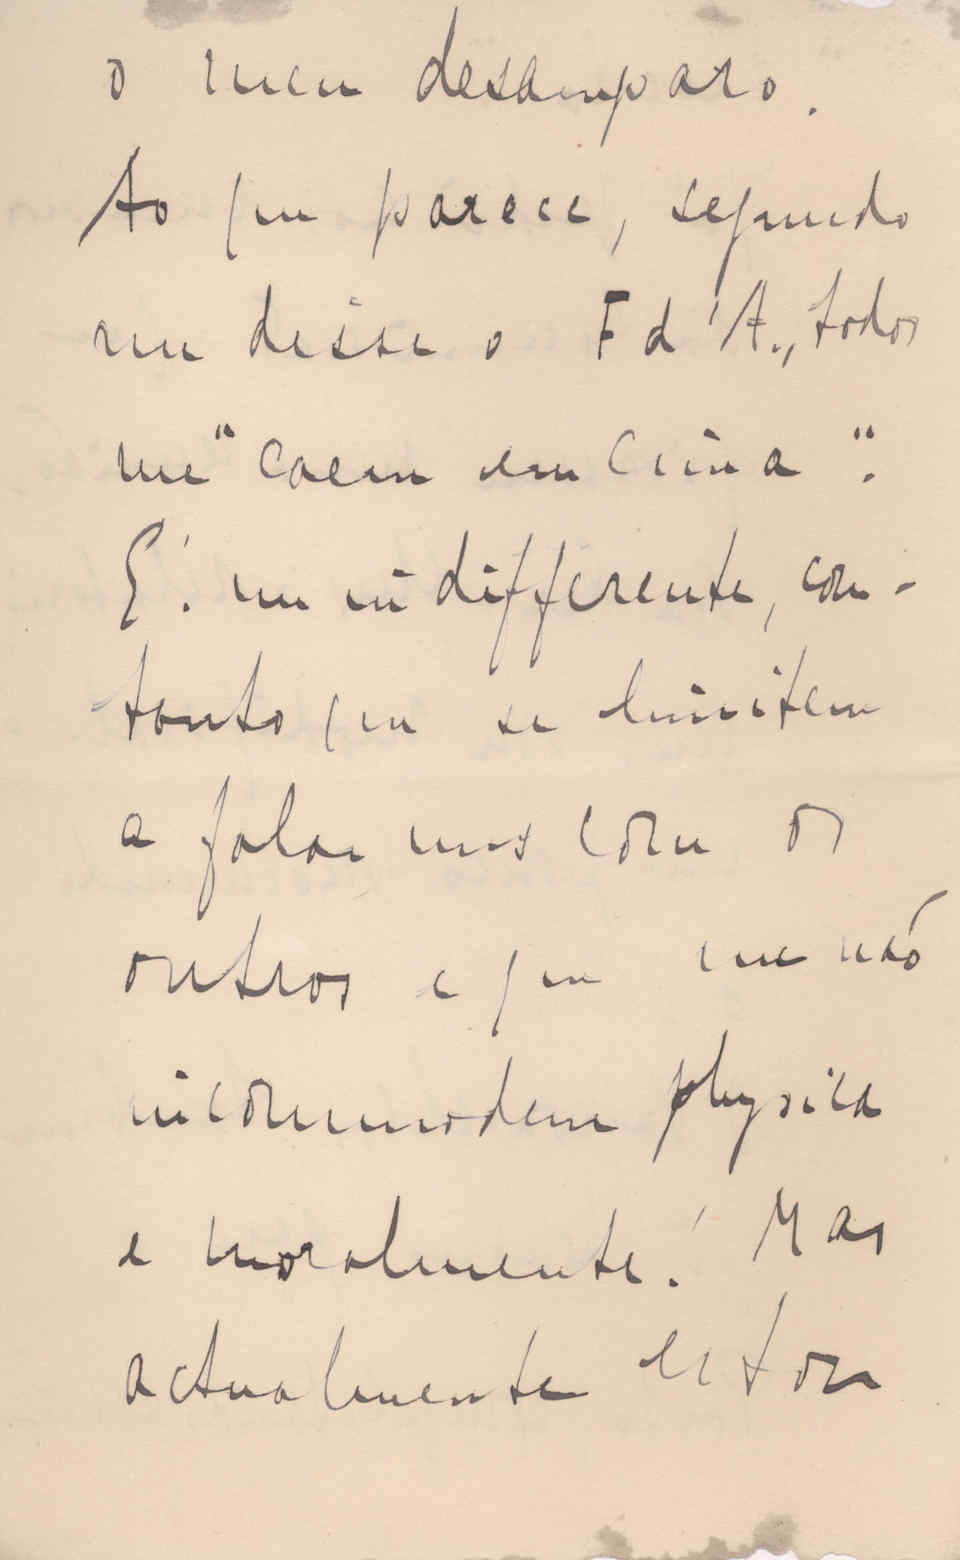 o meu desamparo.
Ao que parece, segundo
me disse o F d'A., todos
me "caem em cima".
E'-me indifferente, con-
tanto que se limitem
a falar uns com os
outros e que me não
incommodem physica
e moralmente! Mas
actualmente estou